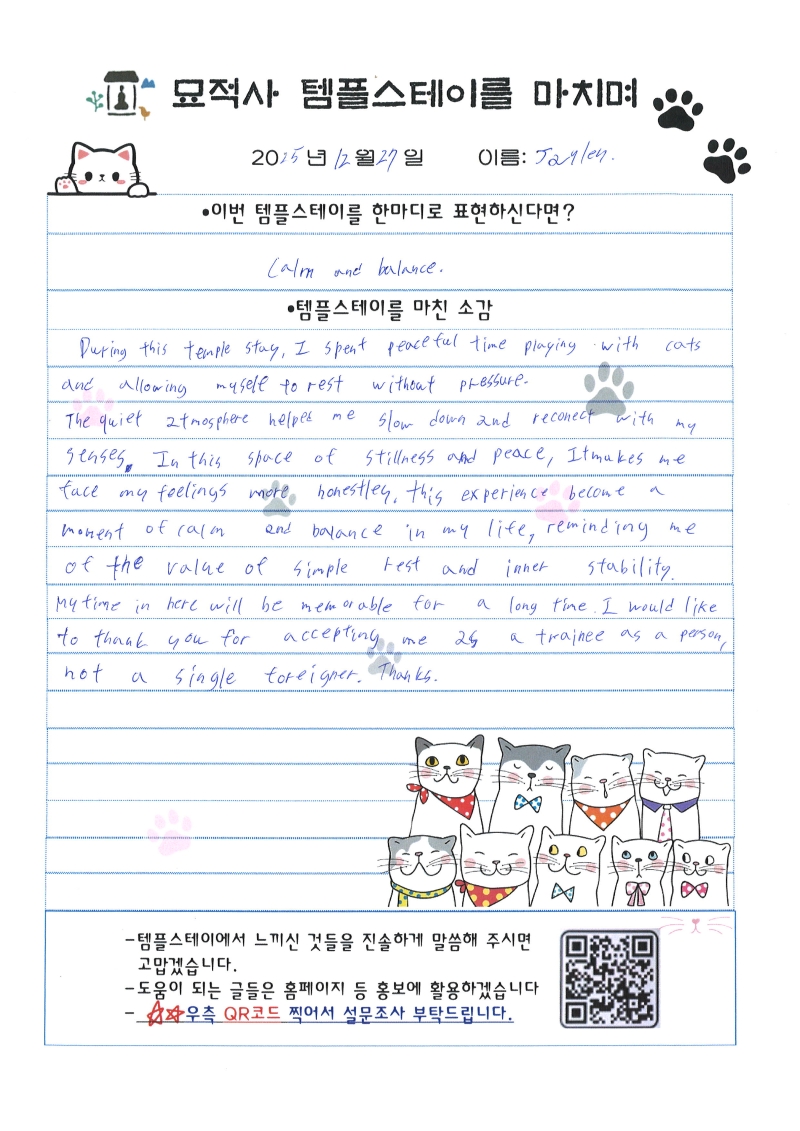 묘적사 템플스테이를 마치며
2025년 12월 27일 이름: Jaylen.
•이번 템플스테이를 한마디로 표현하신다면?
Calm and balance.
•템플스테이를 마친 소감
During this temple stay, I spent peaceful time playing with cats
and allowing myself to rest without pressure.
The quiet atmosphere helped me slow down and reconect with my
senses. In this space of stillness and peace, It makes me
face my feelings more honestley. this experience become a
moment of calm and balance in my life, reminding me
of the value of simple rest and inner stability.
My time in here will be memorable for a long time. I would like
to thank you for accepting me as a trainee as a person,
not a single foreigner. Thanks.
-템플스테이에서 느끼신 것들을 진솔하게 말씀해 주시면
고맙겠습니다.
-도움이 되는 글들은 홈페이지 등 홍보에 활용하겠습니다
- ☆☆우측 QR코드 찍어서 설문조사 부탁드립니다.